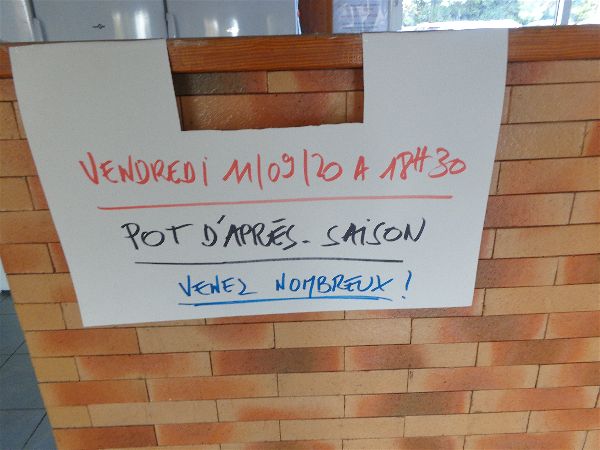 VENDREDi 11/09/20 A 18H30
POT D'APRÉS-SAiSON
VENEZ NOMBREUX !